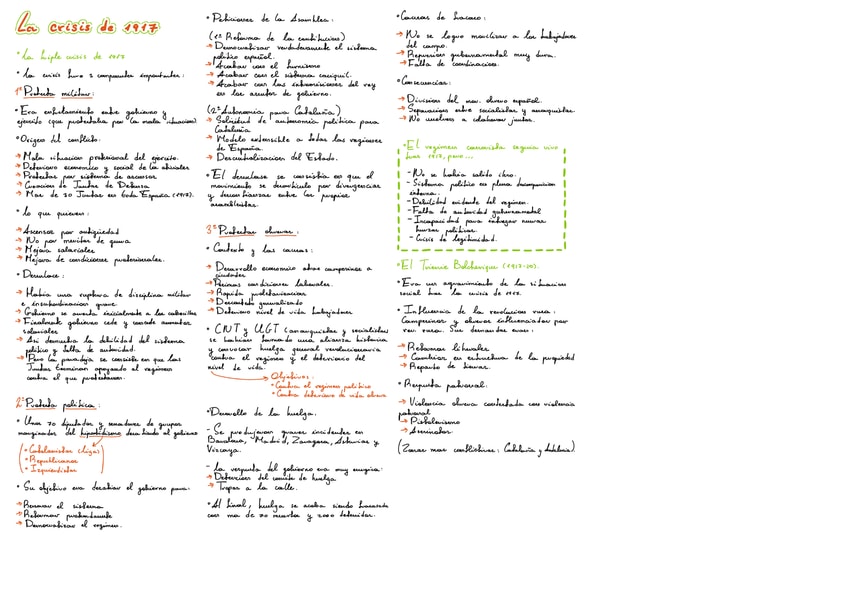 La crisis de 1917
• La triple crisis de 1917
• La crisis tuvo 3 componentes importantes:
1º Protesta militar:
• Era enfrentamiento entre gobierno y
ejército (que protestaba por la mala situación)
• Origen del conflicto:
→ Mala situación profesional del ejército.
→ Deterioro económico y social de los oficiales
→ Protestas por sistema de ascensos
→ Creación de Juntas de Defensa
→ Mas de 30 Juntas en toda España (1917).
• Lo que querían:
→ Ascensos por antigüedad
→ No por méritos de guerra
→ Mejora salariales
→ Mejora de condiciones profesionales.
• Desenlace:
→ Había una ruptura de disciplina militar
e insubordinación grave
→ Gobierno se enfrenta inicialmente a los cabecillas
→ Finalmente gobierno cede y concede aumentos
salariales
→ Así demuestra la debilidad del sistema
político y falta de autoridad.
→ Pero la paradoja se consiste en que las
Juntas terminan apoyando el régimen
contra el que protestaron.
2º Protesta política:
• Unos 70 diputados y senadores de grupos
marginados del bipartidismo desafiando al gobierno
• Catalanistas (Lliga)
• Republicanos
• Izquierdistas
• Su objetivo era desafiar el gobierno para:
→ Renovar el sistema
→ Reformar profundamente
→ Democratizar el régimen.
• Peticiones de la Asamblea:
(1º Reforma de la constitución)
→ Democratizar verdaderamente el sistema
político español.
→ Acabar con el turnismo
→ Acabar con el sistema caciquil.
→ Acabar con las intromisiones del rey
en los asuntos de gobierno.
(2º Autonomía para Cataluña)
→ Solicitud de autonomía política para
Cataluña
→ Modelo extensible a todas las regiones
de España.
→ Descentralización del Estado.
• El desenlace se consistía en que el
movimiento se desarticuló por divergencias
y desconfianzas entre los propios
asambleístas.
3º Protestas obreras:
• Contexto y las causas:
→ Desarrollo económico atrae campesinos a
ciudades
→ Pésimas condiciones laborales.
→ Rápida proletarización
→ Descontento generalizado
→ Deterioro nivel de vida trabajadores
• CNT y UGT (anarquistas y socialistas)
se habían formado una alianza histórica
y convocar huelga general revolucionaria
contra el régimen y el deterioro del
nivel de vida.
→ Objetivos:
• Contra el régimen político
• Contra deterioro de vida obrera
• Desarrollo de la huelga.
- Se produjeron graves incidentes en
Barcelona, Madrid, Zaragoza, Asturias y
Vizcaya.
- La respuesta del gobierno era muy enérgica:
→ Detenciones del comité de huelga
→ Tropas a la calle.
• Al final, huelga se acaba siendo fracasada
con mas de 70 muertos y 2000 detenidos.
• Causas de fracaso:
→ No se logró movilizar a los trabajadores
del campo.
→ Represión gubernamental muy dura.
→ Falta de coordinación.
• Consecuencias:
→ División del mov. obrero español.
→ Separación entre socialistas y anarquistas.
→ No vuelven a colaborar juntos.
• El régimen canovista seguía vivo
tras 1917, pero...
- No se había salido ileso.
- Sistema político en plena descomposición
interna.
- Debilidad evidente del régimen.
- Falta de autoridad gubernamental
- Incapacidad para integrar nuevas
fuerzas políticas.
- Crisis de legitimidad.
• El Trienio Bolchevique (1917-20).
• Era un agravamiento de la situación
social tras la crisis de 1917.
• Influencia de la revolución rusa:
Campesinos y obreros influenciados por
rev. rusa. Sus demandas eran:
→ Reformas liberales
→ Cambios en estructura de la propiedad
→ Reparto de tierras.
• Respuesta patronal:
→ Violencia obrera contestada con violencia
patronal
→ Pistolerismo
→ Asesinatos
(Zonas mas conflictivas: Cataluña y Andalucía).